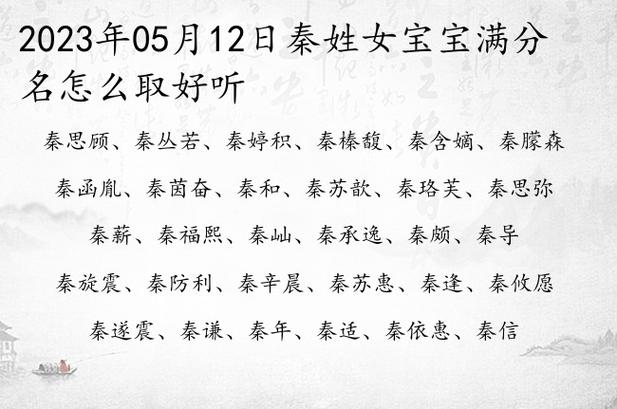 2023年05月12日秦姓女宝宝满分
名怎么取好听
秦思顾、秦丛若、秦婷积、秦榛馥、秦含嫡、秦朦森
秦函胤、秦茵奋、秦和、秦苏歆、秦珞芙、秦思弥
秦薪、秦福熙、秦屾、秦承逸、秦颇、秦导
秦旋震、秦防利、秦辛晨、秦苏惠、秦逢、秦攸愿
秦遂震、秦谦、秦年、秦适、秦依惠、秦信